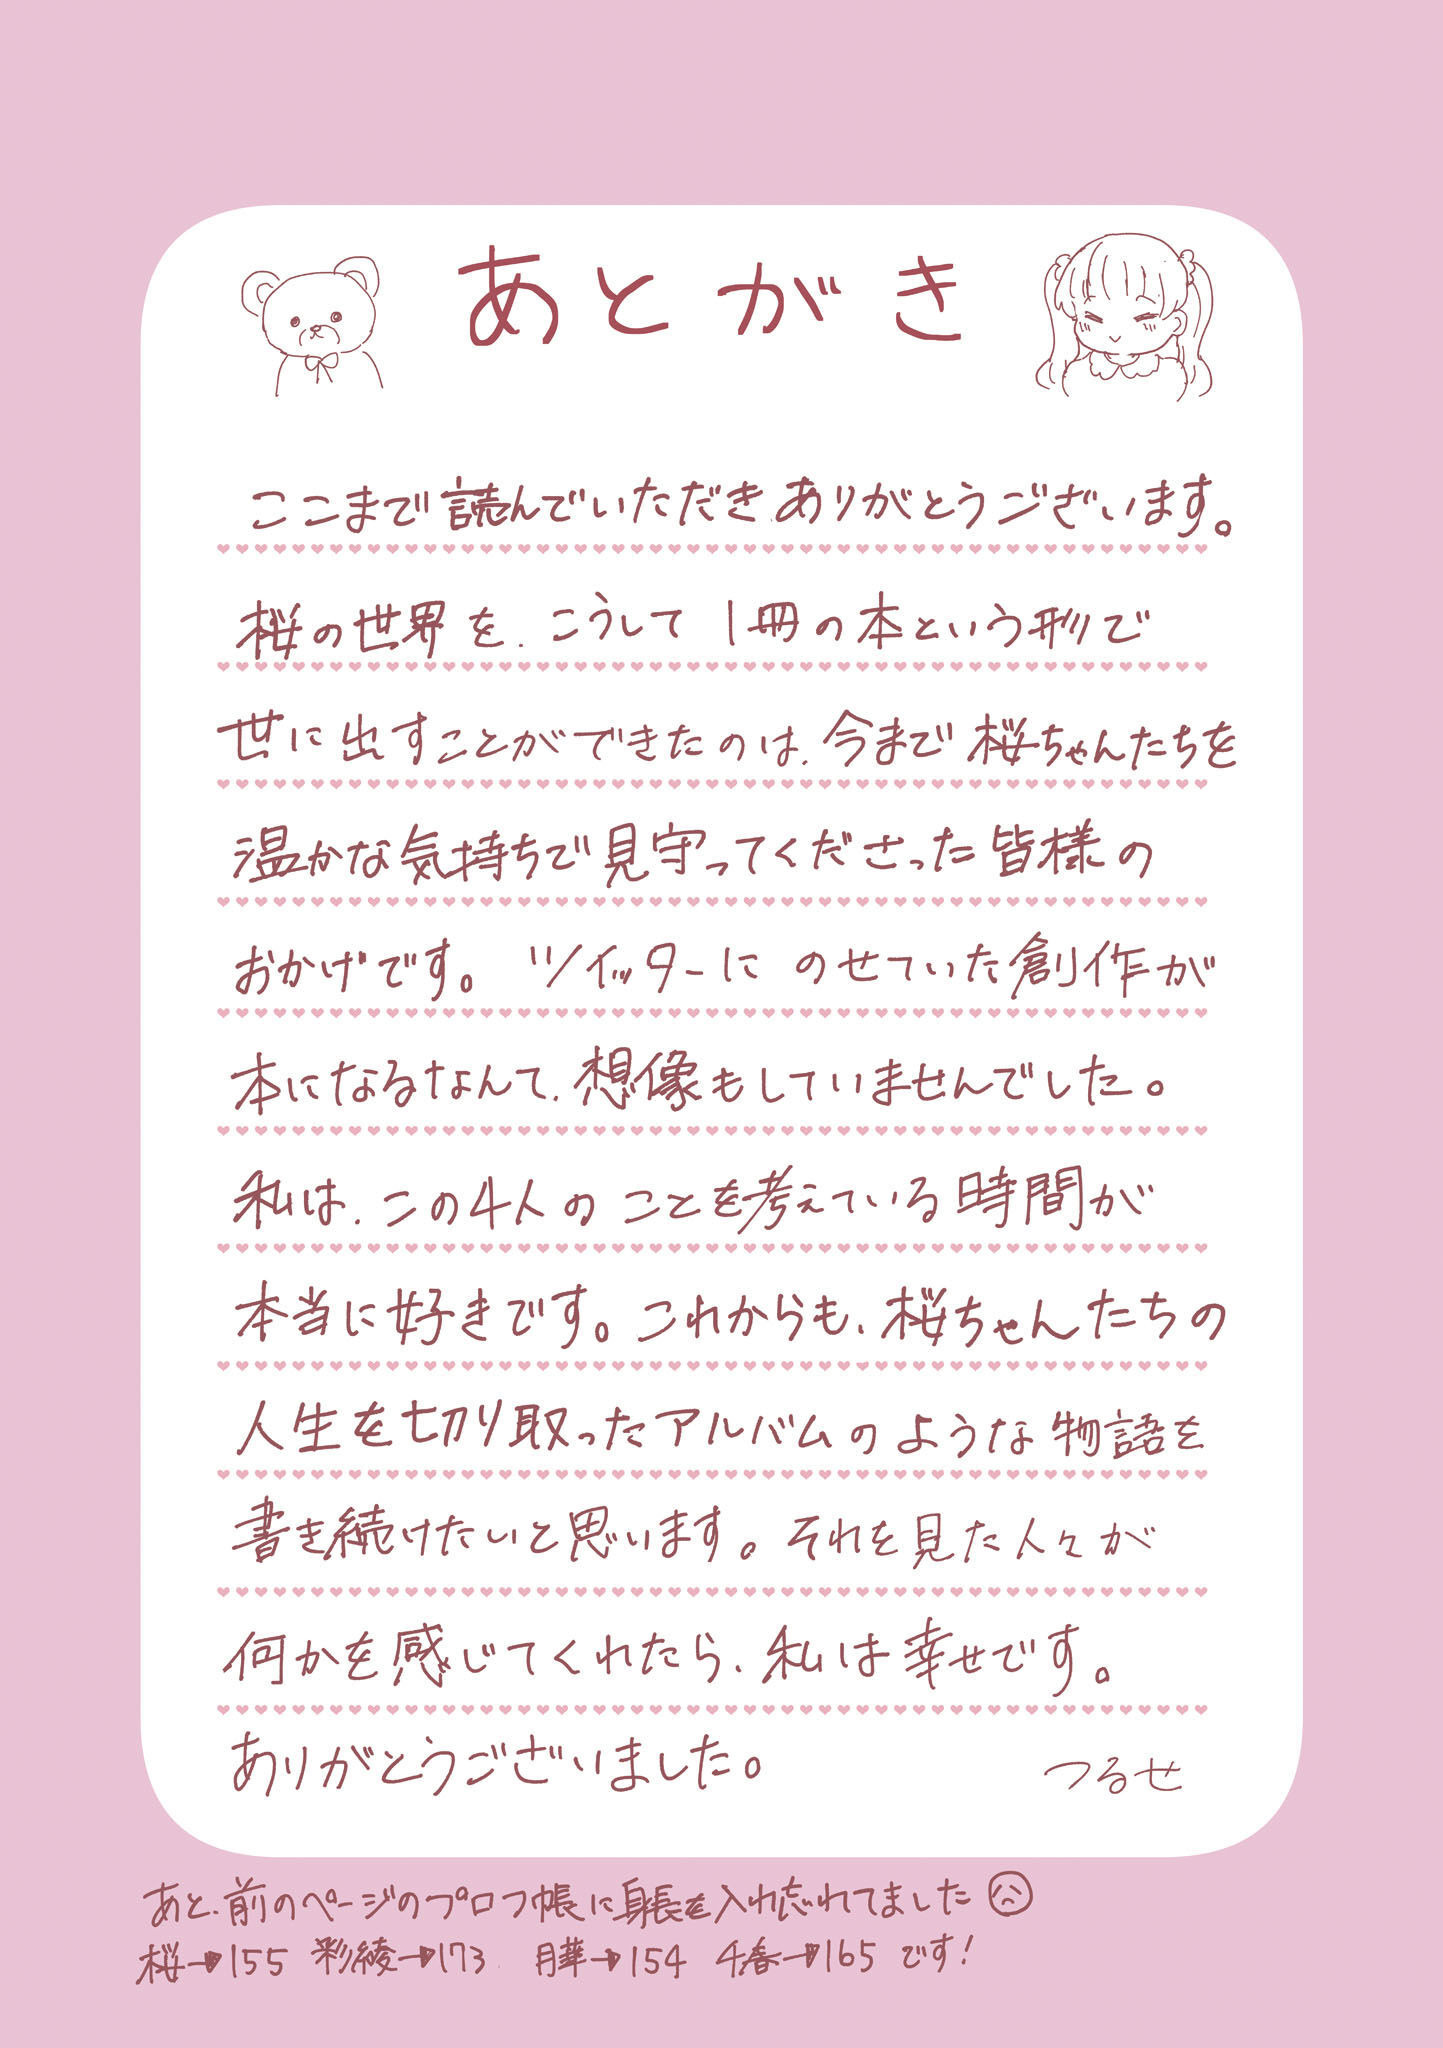 あとがき
ここまで読んでいただきありがとうございます。
桜の世界を、こうして1冊の本という形で
世に出すことができたのは、今まで桜ちゃんたちを
温かな気持ちで見守ってくださった皆様の
おかげです。ツイッターにのせていた創作が
本になるなんて、想像もしていませんでした。
私は、この4人のことを考えている時間が
本当に好きです。これからも、桜ちゃんたちの
人生を切り取ったアルバムのような物語を
書き続けたいと思います。それを見た人々が
何かを感じてくれたら、私は幸せです。
ありがとうございました。 つるせ
あと、前のページのプロフ帳に身長を入れ忘れてました
桜→155 彩綾→173 月華→154 千春→165 です!